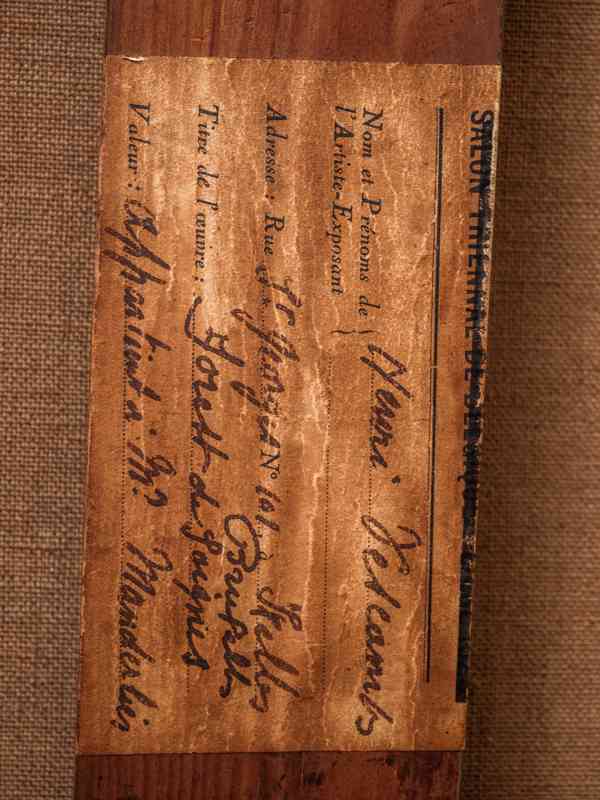 SALON TRIENNAL DE BELGIQUE
Nom et Prénoms de
l'Artiste-Exposant
Henri
Adresse : Rue St Georges No 101. à Ixelles
Bruxelles
Titre de l'œuvre : Forett de Soignes
Valeur : Appartient à Mr Manderlier